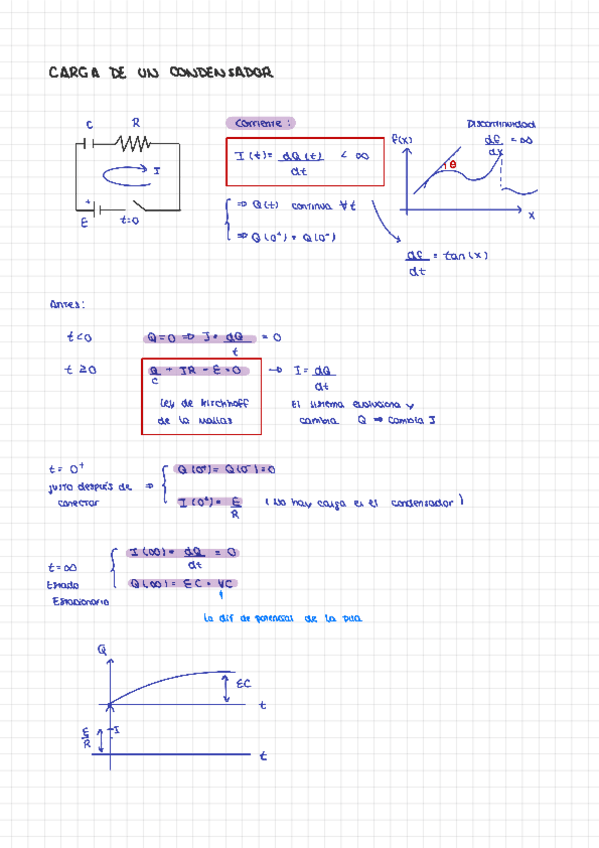 CARGA DE UN CONDENSADOR
C R
I
+
E t=0
Corriente:
I(t) = dQ(t) / dt < ∞
⇒ Q(t) continua ∀t
⇒ Q(0⁺) = Q(0⁻)
Discontinuidad
f(x) df/dx = ∞
θ
x
df/dt = tan(x)
Antes:
t<0 Q=0 ⇒ I = dQ/t = 0
t≥0 Q/C + IR - E = 0 → I = dQ/dt
Ley de Kirchhoff El sistema evoluciona y
de la mallas cambia Q ⇒ cambia I
t = 0⁺ Q(0⁺) = Q(0⁻) = 0
justo después de ⇒
conectar I(0⁺) = E/R (No hay carga en el condensador)
I(∞) = dQ/dt = 0
t=∞
Estado Q(∞) = EC = VC
Estacionario
la dif de potencial de la pila
Q
EC
t
E/R I
t